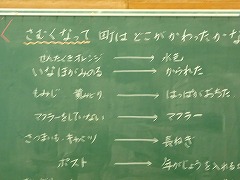 さむくなって 町は どこが かわったかな
せんたくオレンジ → 水色
いなほがみのる → かられた
もみじ → はっぱがおちた
マフラーをしていない → マフラー
さつまいも、キャベツ → 長ねぎ
ポスト → 年がじょうを入れる